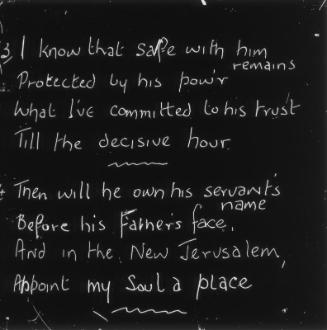 3, I know that safe with him
remains
Protected by his pow'r
What I've committed to his trust
Till the decisive hour.
4 Then will he own his servant's
name
Before his Father's face,
And in the New Jerusalem,
Appoint my Soul a place